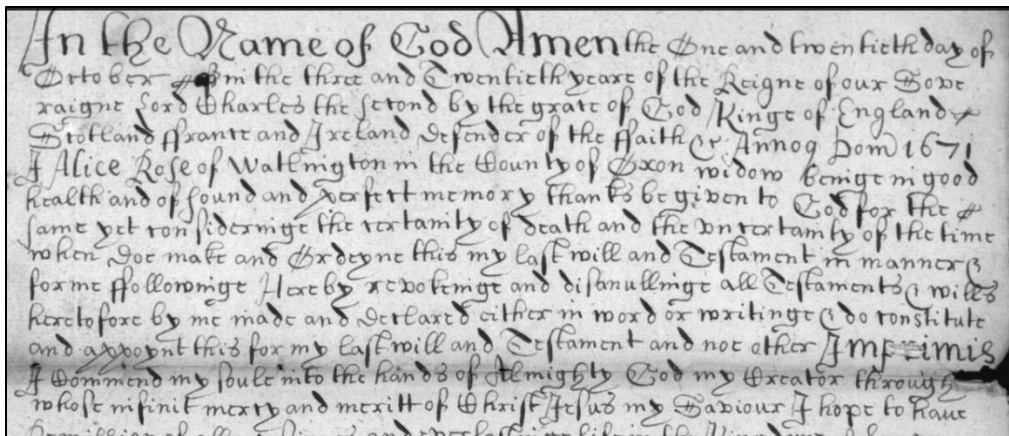 In the Name of God Amen the One and twentieth day of
October in the three and Twentieth yeare of the Reigne of our Sove
raigne Lord Charles the second by the grace of God Kinge of England &
Scotland ffrance and Ireland defender of the ffaith &c Annoq Dom 1671
I Alice Rose of Watlington in the County of Oxon widow beinge in good
health and of sound and perfect memory thanks be given to God for the
same yet consideringe the certainty of death and the uncertainty of the time
when Doe make and Ordeyne this my last will and Testament in manner &
forme ffollowinge Hereby revokeinge and disanullinge all Testaments & wills
heretofore by me made and declared either in word or writinge & do constitute
and appoynt this for my last will and Testament and noe other Imprimis
I Commend my soule into the hands of Almighty God my Creator through
whose infinit mercy and meritt of Christ Jesus my Saviour I hope to have